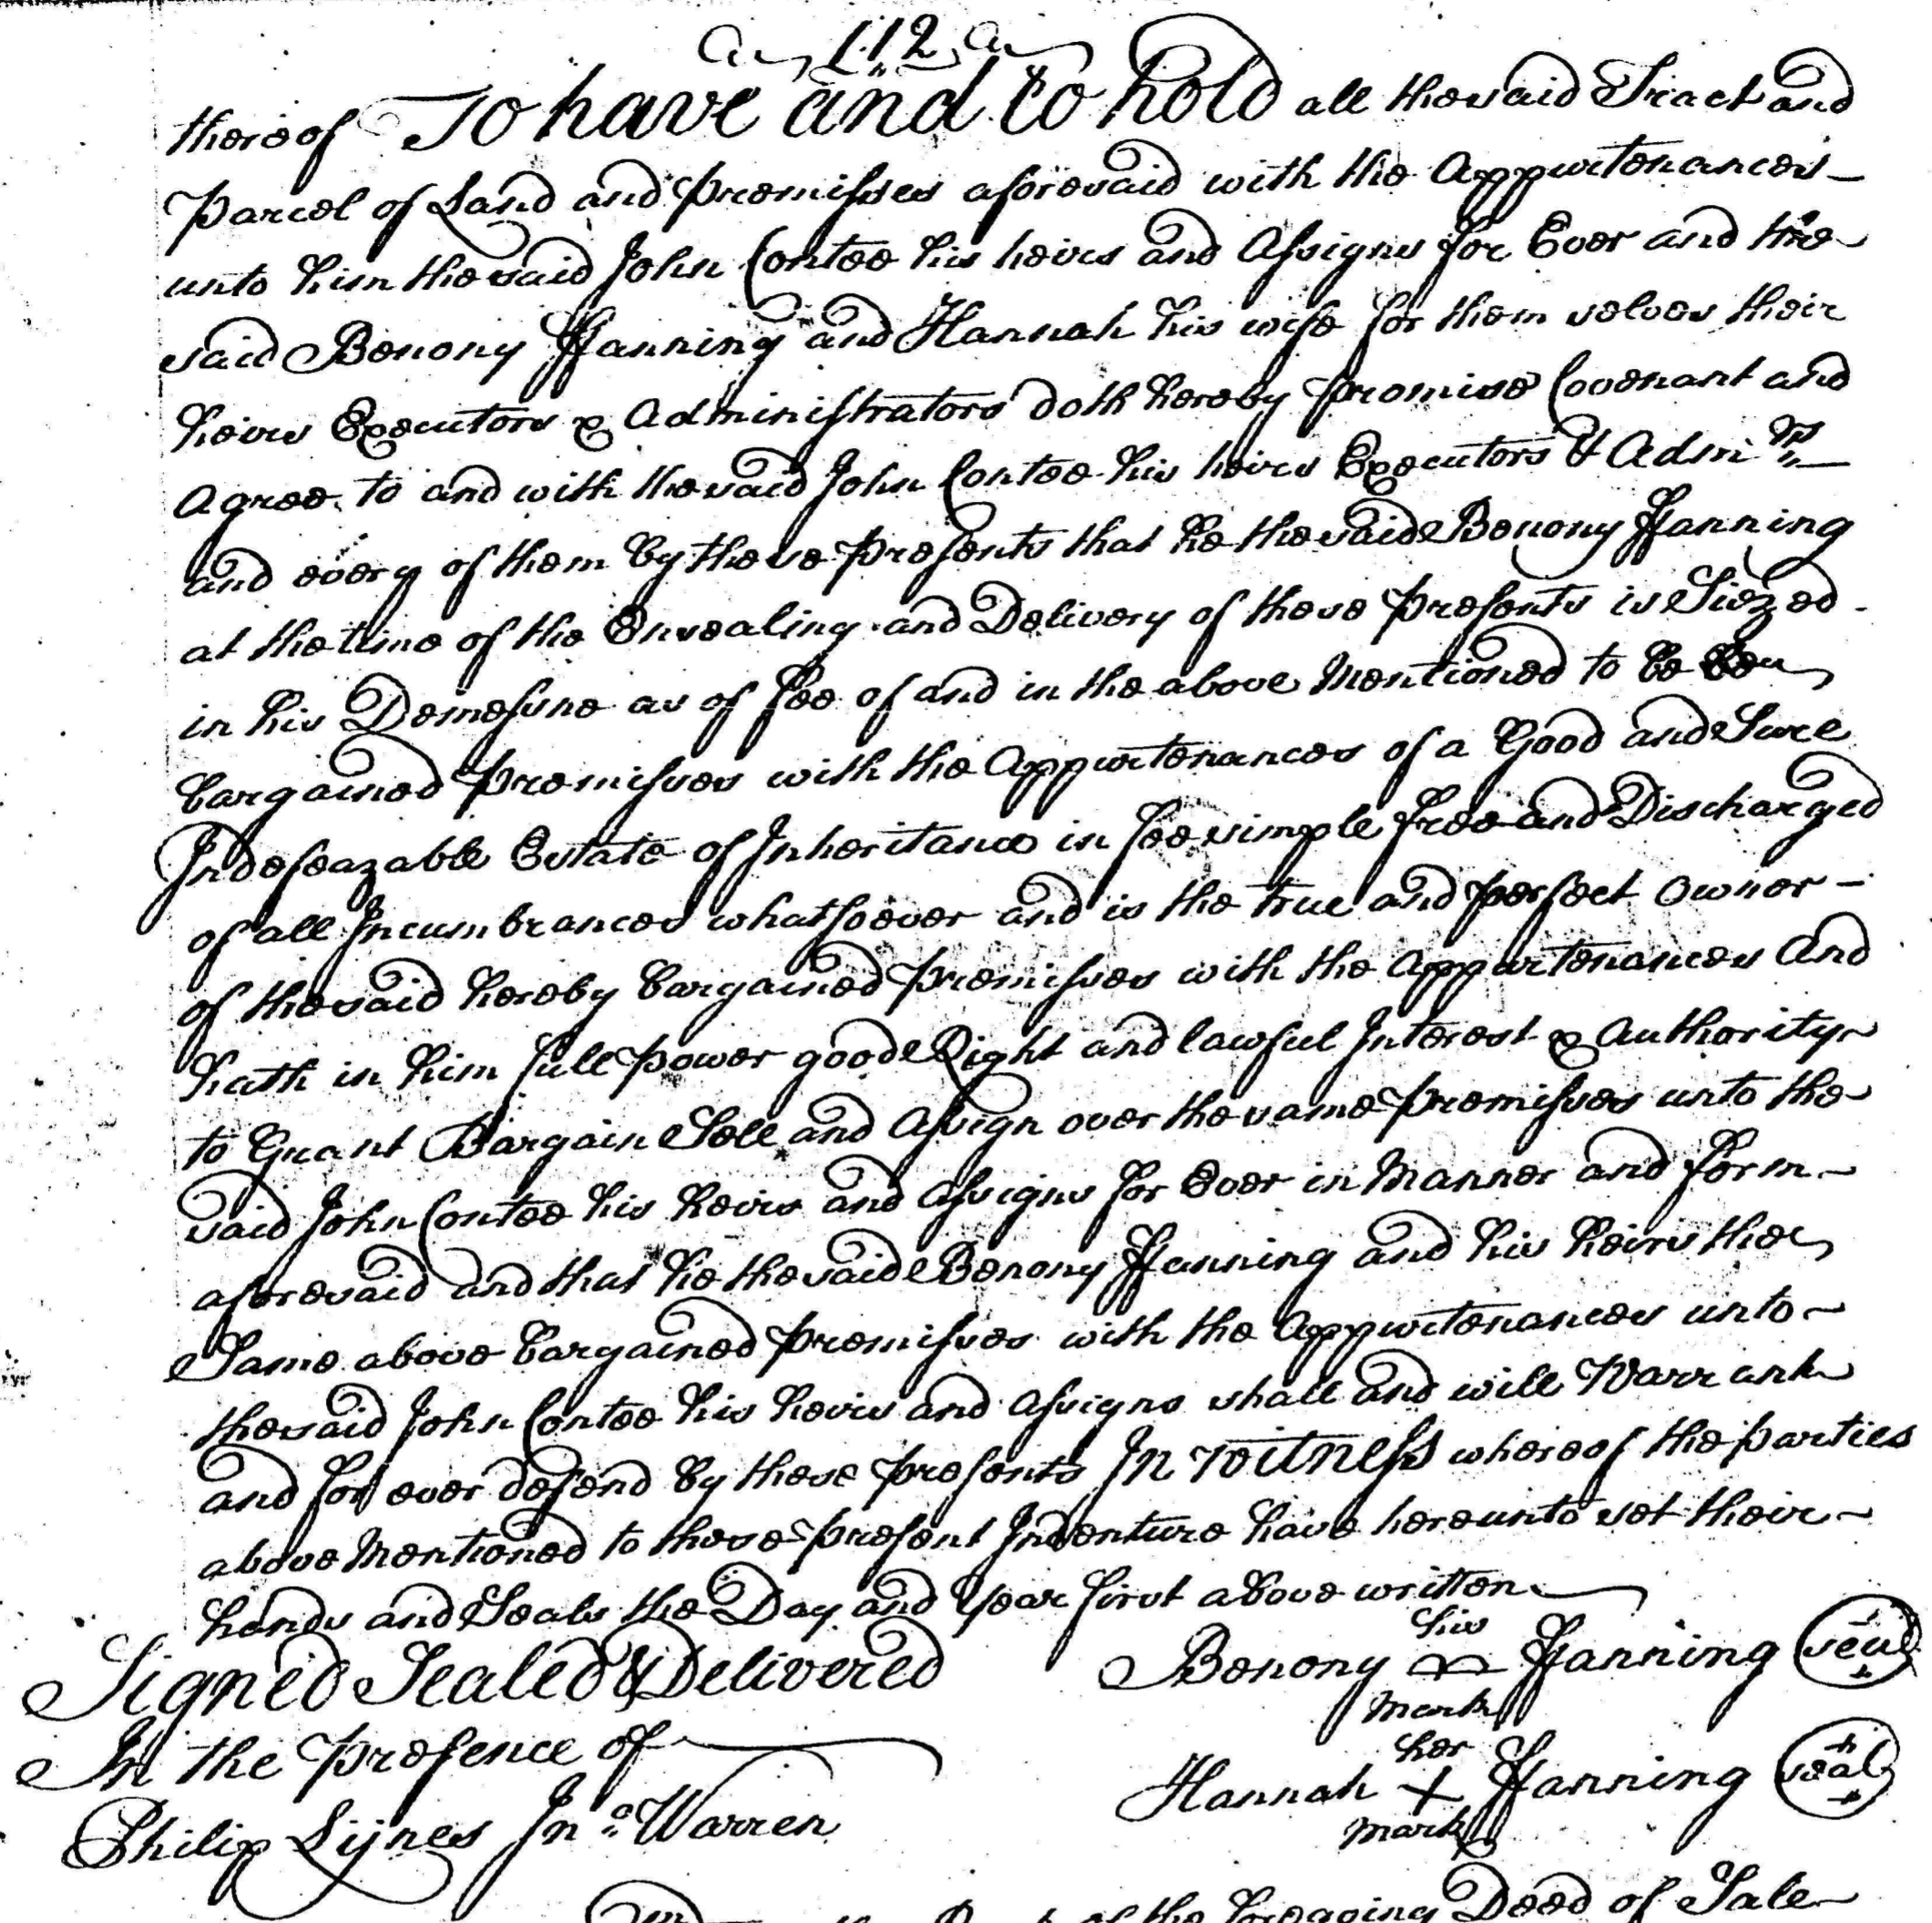 112
thereof To have and to hold all the said Tract and
Parcel of Land and premisses aforesaid with the Appurtenances
unto him the said John Contee his heirs and Assigns for Ever and the
said Benony ffanning and Hannah his wife for them selves their
heirs Executors & Administrators doth hereby promise Covenant and
Agree to and with the said John Contee his heirs Executors & Admi.rs
and every of them by these presents that he the said Benony ffanning
at the time of the Ensealing and Delivery of these presents is Siezed
in his Demesne as of fee of and in the above Mentioned to be
bargained premisses with the Appurtenances of a Good and Sure
Indefeazable Estate of Inheritance in fee simple free and Discharged
of all Incumbrances whatsoever and is the true and perfect Owner
of the said hereby bargained premisses with the Appurtenances And
hath in him full power good Right and lawful Interest & Authority
to Grant Bargain Sell and Assign over the same premisses unto the
said John Contee his heirs and Assigns for Ever in Manner and form
aforesaid and that he the said Benony ffanning and his heirs the
Same above bargained premisses with the Appurtenances unto
the said John Contee his heirs and Assigns shall and will Warrant
and for ever defend by these presents In Witness whereof the parties
above Mentioned to these present Indenture have hereunto set their
hands and Seals the Day and Year first above written
Signed Sealed & Delivered
In the Presence of
Philip Lijnes Jno. Warren
his
Benony ffanning seal
mark
her
Hannah X ffanning seal
mark
of the foregoing Deed of Sale